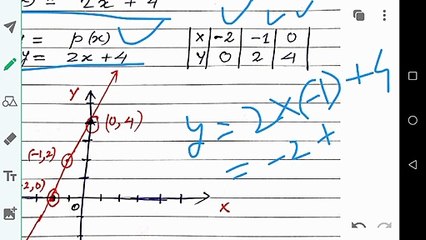 = 2x + 4
= p(x)
y = 2x+4
x | -2 | -1 | 0
y | 0 | 2 | 4
y = 2×(-1) +4
= -2 +
Y
(0, 4)
(-1, 2)
2, 0)
O
X
Tт